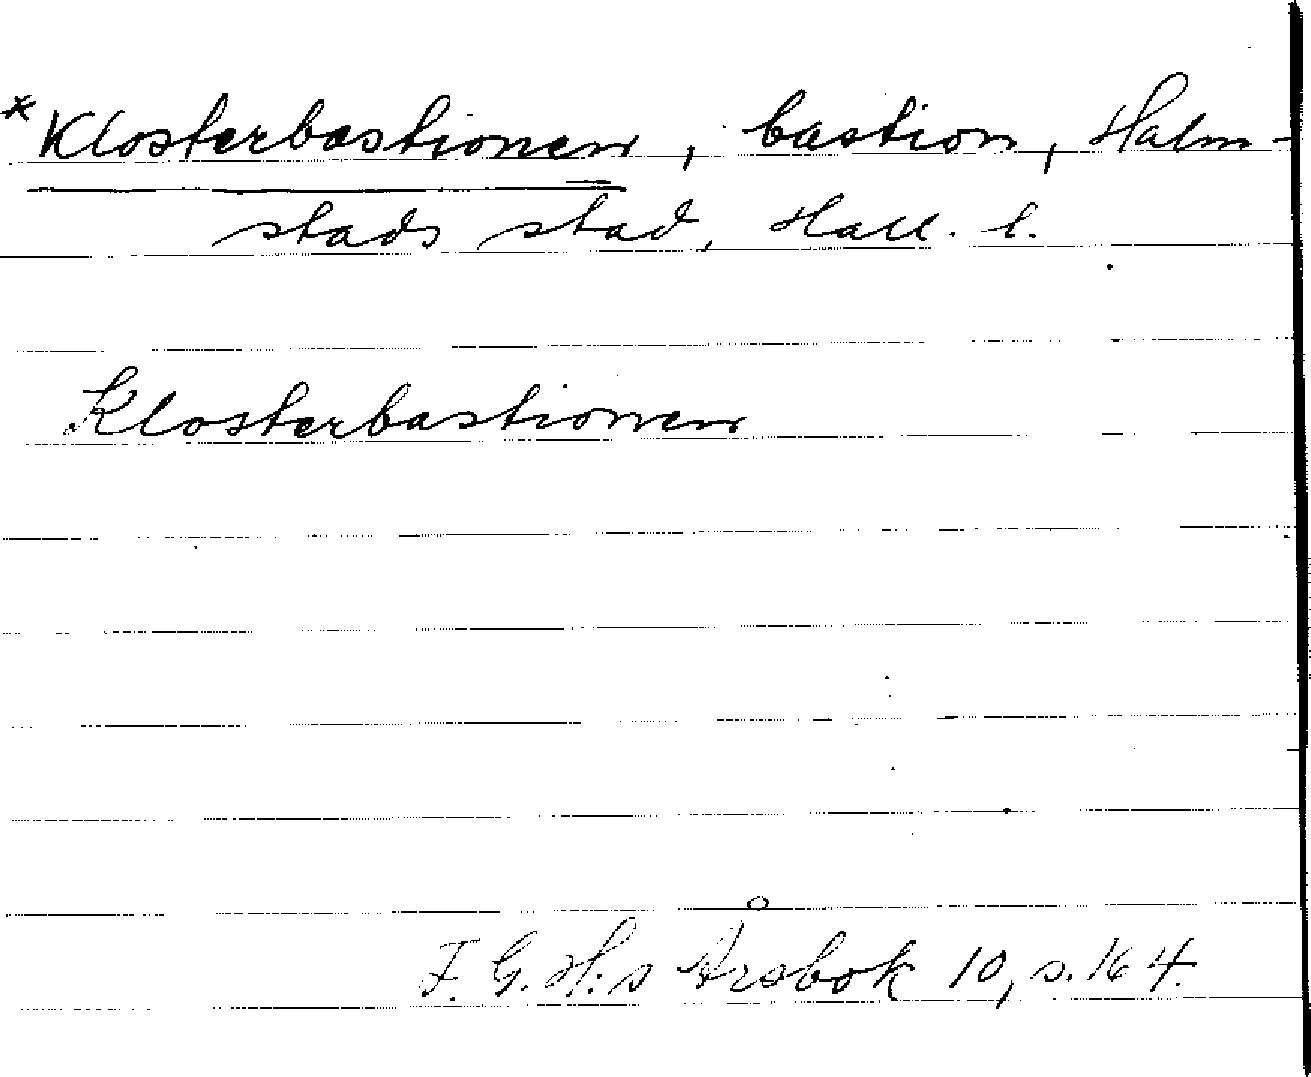 *Klosterbastionen, bastion, Halm-
stads stad, Hall. l.
Klosterbastionen
F. G. H:s Årsbok 10, s. 164.